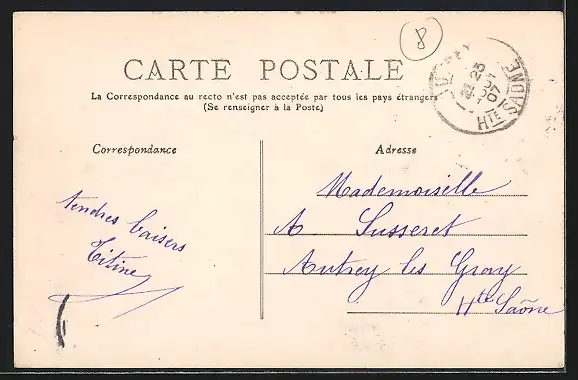 8
CARTE POSTALE
La Correspondance au recto n'est pas acceptée par tous les pays étrangers
(Se renseigner à la Poste)
23
07
HTE SAONE
Correspondance
Adresse
tendres baisers
Titine
Mademoiselle
A. Susseret
Autrey les Gray
Hte Saône